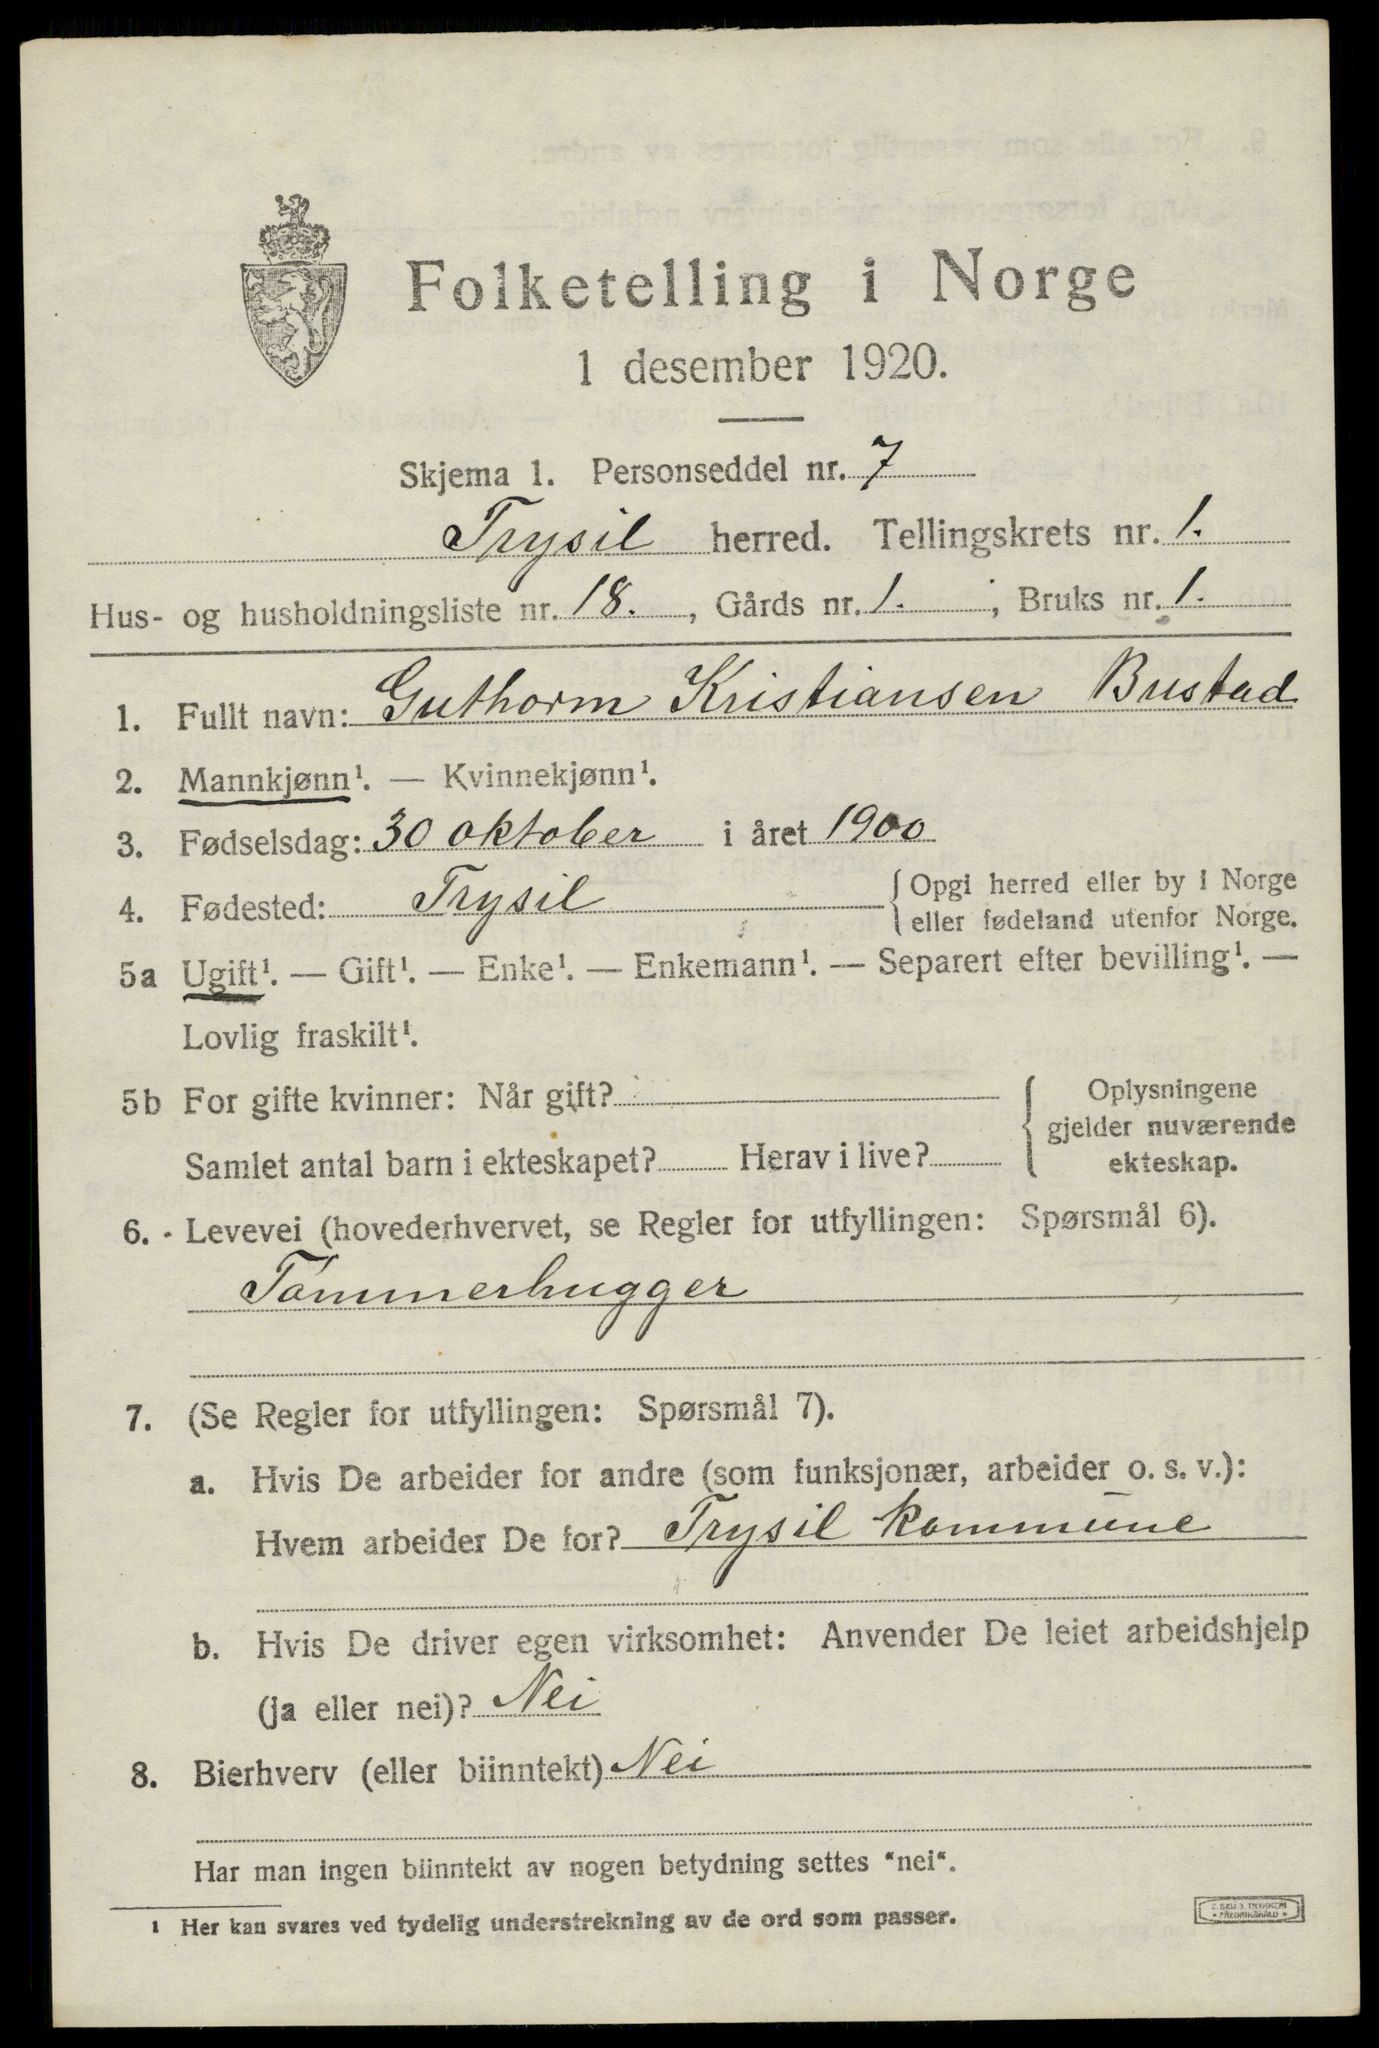 Folketelling i Norge
1 desember 1920.
Skjema 1. Personseddel nr. 7
Trysil herred. Tellingskrets nr. 1.
Hus- og husholdningsliste nr. 18. , Gårds nr. 1. , Bruks nr. 1.
1. Fullt navn: Guthorm Kristiansen Bustad
2. Mannkjønn¹. — Kvinnekjønn¹.
3. Fødselsdag: 30 oktober i året 1900
4. Fødested: Trysil { Opgi herred eller by i Norge
eller fødeland utenfor Norge.
5a Ugift¹. — Gift¹. — Enke¹. — Enkemann¹. — Separert efter bevilling¹. —
Lovlig fraskilt¹.
5b For gifte kvinner: Når gift? { Oplysningene
gjelder nuværende
Samlet antal barn i ekteskapet? Herav i live? ekteskap.
6. Levevei (hovederhvervet, se Regler for utfyllingen: Spørsmål 6).
Tømmerhugger
7. (Se Regler for utfyllingen: Spørsmål 7).
a. Hvis De arbeider for andre (som funksjonær, arbeider o. s. v.):
Hvem arbeider De for? Trysil kommune
b. Hvis De driver egen virksomhet: Anvender De leiet arbeidshjelp
(ja eller nei)? Nei
8. Bierhverv (eller biinntekt) Nei
Har man ingen biinntekt av nogen betydning settes "nei".
¹ Her kan svares ved tydelig understrekning av de ord som passer.